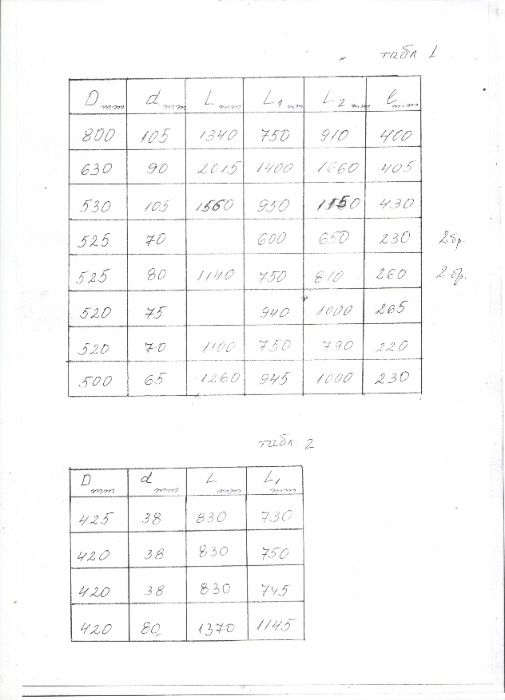 табл 1
D mm d mm L mm L1 mm L2 mm l mm
800 105 1340 750 910 400
630 90 2015 1400 1660 405
530 105 1560 950 1150 430
525 70 600 650 230 2 бр.
525 80 1140 750 810 260 2 бр.
520 75 940 1000 265
520 70 1100 750 790 220
500 65 1260 945 1000 230
табл. 2
D mm d mm L mm L1 mm
425 38 830 730
420 38 830 750
420 38 830 745
420 80 1370 1145